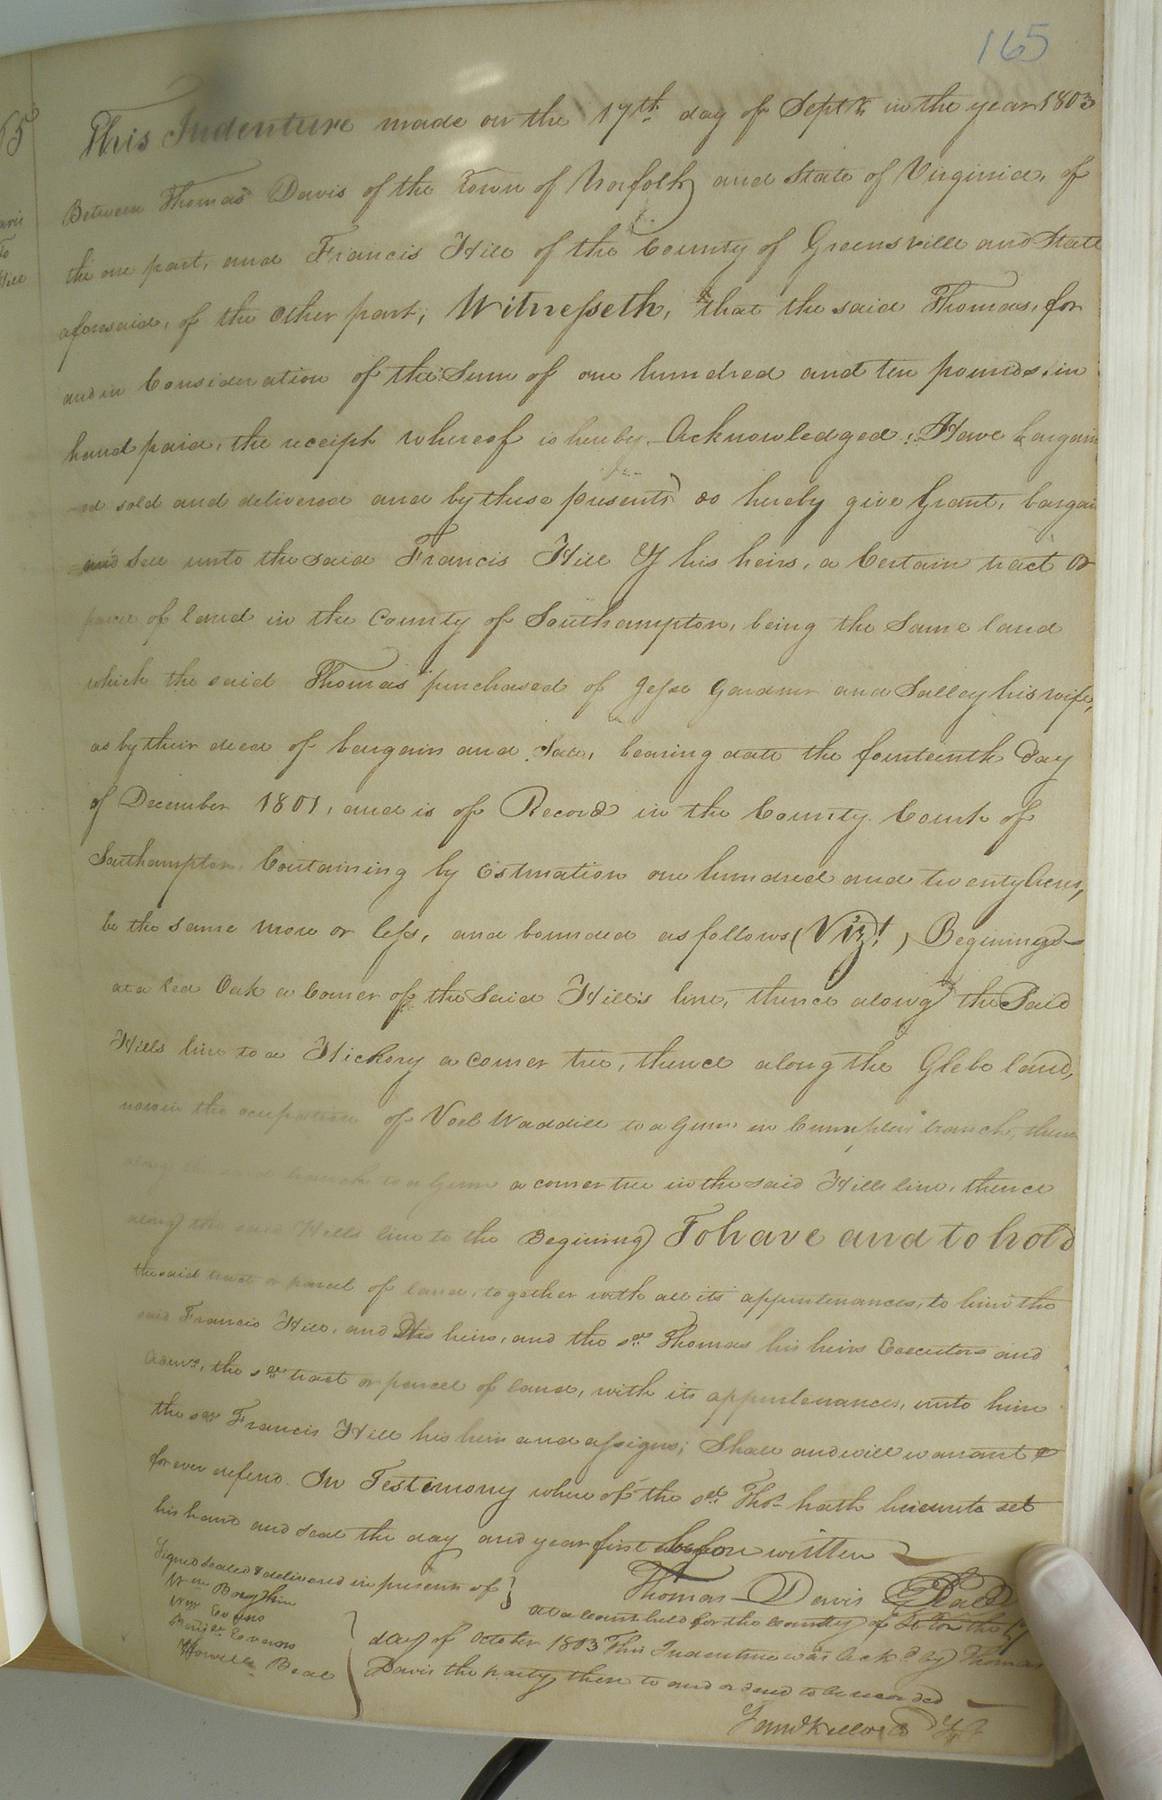 165
This Indenture made on the 17th day of Septr. in the year 1803
Between Thomas Davis of the Town of Norfolk and State of Virginia, of
the one part, and Francis Hill of the County of Greensville and State
aforesaid, of the other part; Witnesseth, that the said Thomas, for
and in Consideration of the Sum of one hundred and ten pounds, in
hand paid, the receipt whereof is hereby Acknowledged; Have bargain
ed sold and delivered and by these presents do hereby give Grant, bargain
and Sell unto the said Francis Hill & his heirs, a Certain tract or
parcel of land in the County of Southampton, being the Same land
which the said Thomas purchased of Jesse Gardner and Salley his wife,
as by their deed of bargain and Sale, bearing date the fourteenth Day
of December 1801, and is of Record in the County Court of
Southampton. Containing by Estmation one hundred and twenty Acres,
be the same more or less, and bounded as follows (Vizt.) Begining
at a Red Oak a Corner of the Said Hill's line, thence along the Said
Hills line to a Hickory a corner tree, thence along the Glebe land,
now in the ocupation of Noel Waddill to a Gum in branch, thence
along the said branch to a Gum a corner tree in the said Hills line, thence
along the said Hills line to the Begining To have and to hold
the said tract or parcel of land, together with all its appurtenances, to him the
said Francis Hill, and His heirs, and the sd. Thomas his heirs Executors and
Admrs, the sd. tract or parcel of land, with its appurtenances, unto him
the sd. Francis Hill his heirs and assigns; Shall and will warrant &
for ever defend. In Testimony where of the sd. Thos. hath hereunto set
his hand and seal the day and year first before written
Signed sealed & delivered in presence of
Thomas Davis Seal
Wm
Wm
Howell Beal
At a Court held for the County of the 17
day of October 1803 This Indenture was Ackd. by Thomas
Davis the party there to and ordered to be recorded